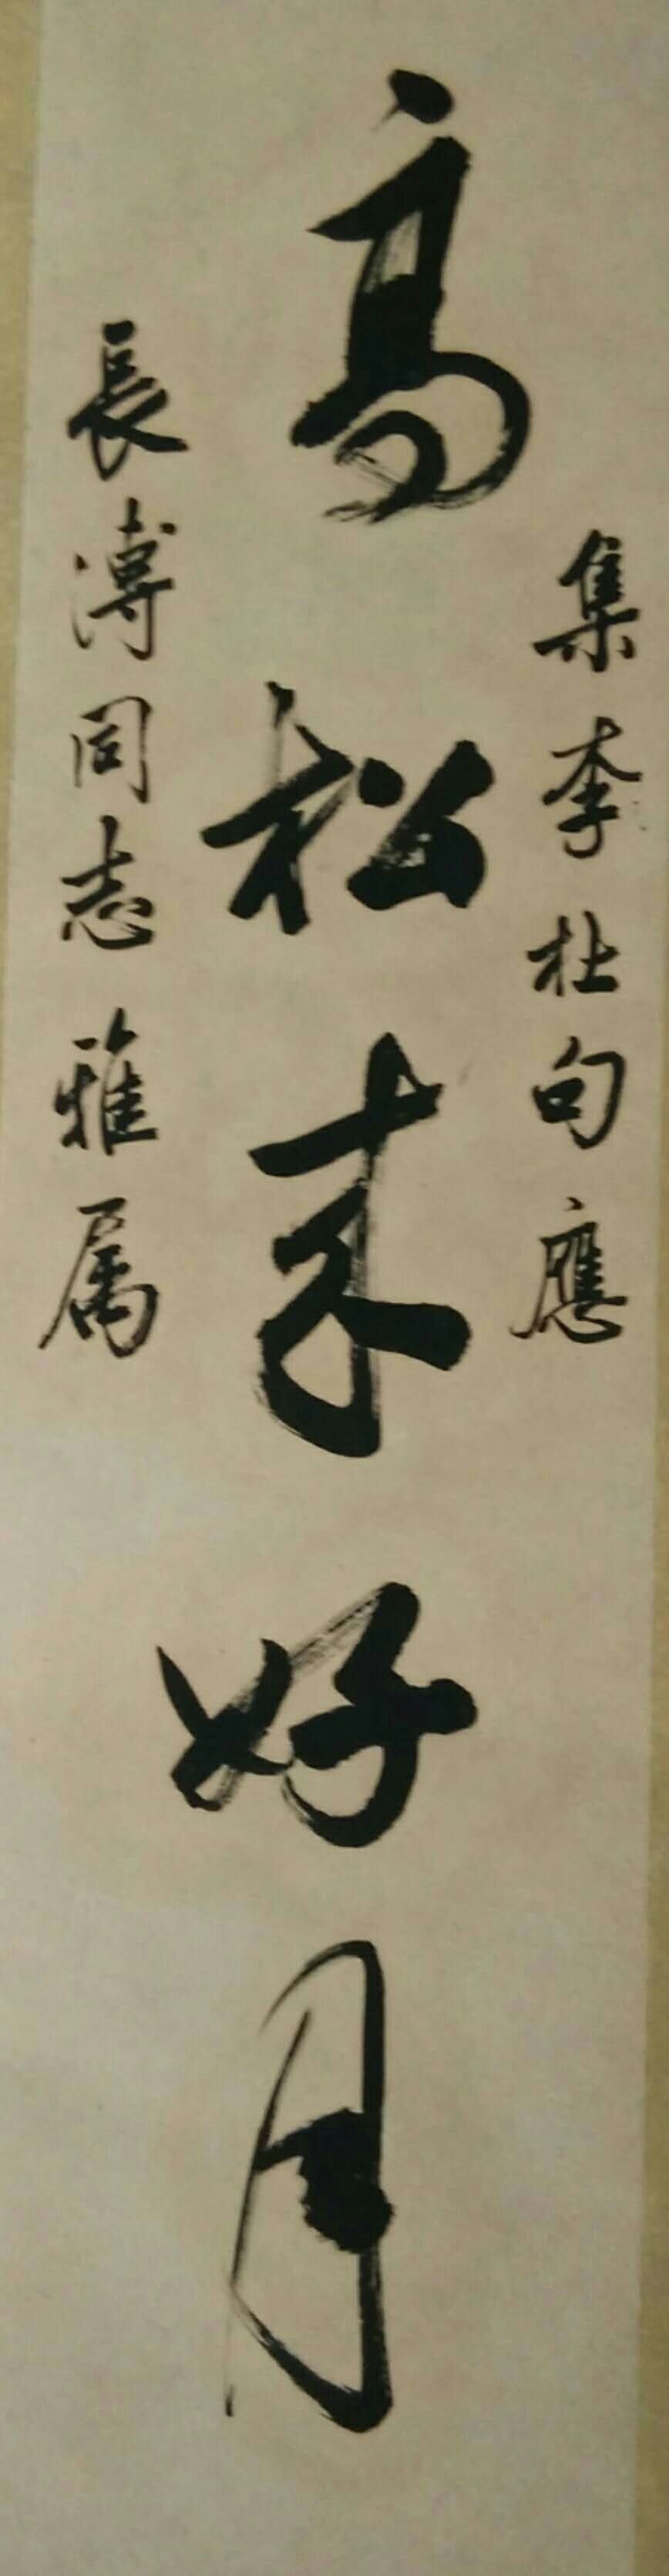 集李杜句應
高松来好月
長溥同志雅属